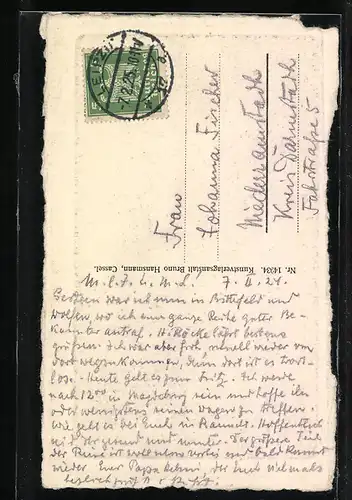 LEIPZIG
Frau
Johanna Fischer
Niederramstadt
Kreis Darmstadt
Fahrstraße 5
Nr. 14934. Kunstverlaganstalt Bruno Hansmann, Cassel.
7. II. 27.
Gestern war ich nun in Bitterfeld und
Wolfen, wo ich eine ganze Reihe guter Be-
kannter antraf. H. Röcke läßt bestens
grüßen. Ich war aber froh, schnell wieder von
dort wegzukommen, denn dort ist es trost-
los. Heute geht es zum Fritz. Ich werde
nach 12⁰⁰ in Magdeburg sein und hoffe ihn
oder wenigstens seinen Wagen zu treffen.
Wie geht es bei Euch in Hoffentlich
seid Ihr gesund und munter. Der größere Teil
der Reise ist vorbei und bald kommt
wieder Euer Papa heim, der Euch vielmals
herzlich grüßt